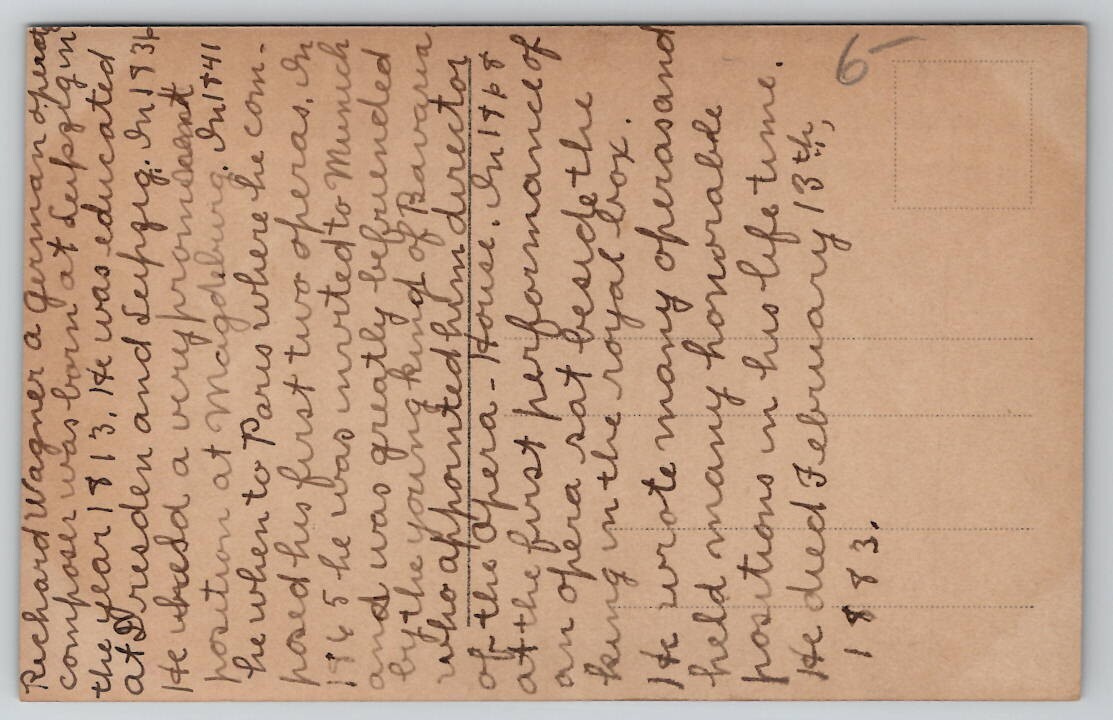 Richard Wagner a German opera
composer was born at Leipzig in
the year 1813. He was educated
at Dresden and Leipzig. In 1836
He held a very prominent
position at Magdeburg. In 1841
he when to Paris where he com-
posed his first two operas. In
1865 he was invited to Munich
and was greatly befriended
by the young king of Bavaria
who appointed him director
of the Opera-House. In 1868
at the first performance of
an opera sat beside the
king in the royal box.
He wrote many operas and
held many honorable
positions in his life time.
He died February 13th,
1883.
6-